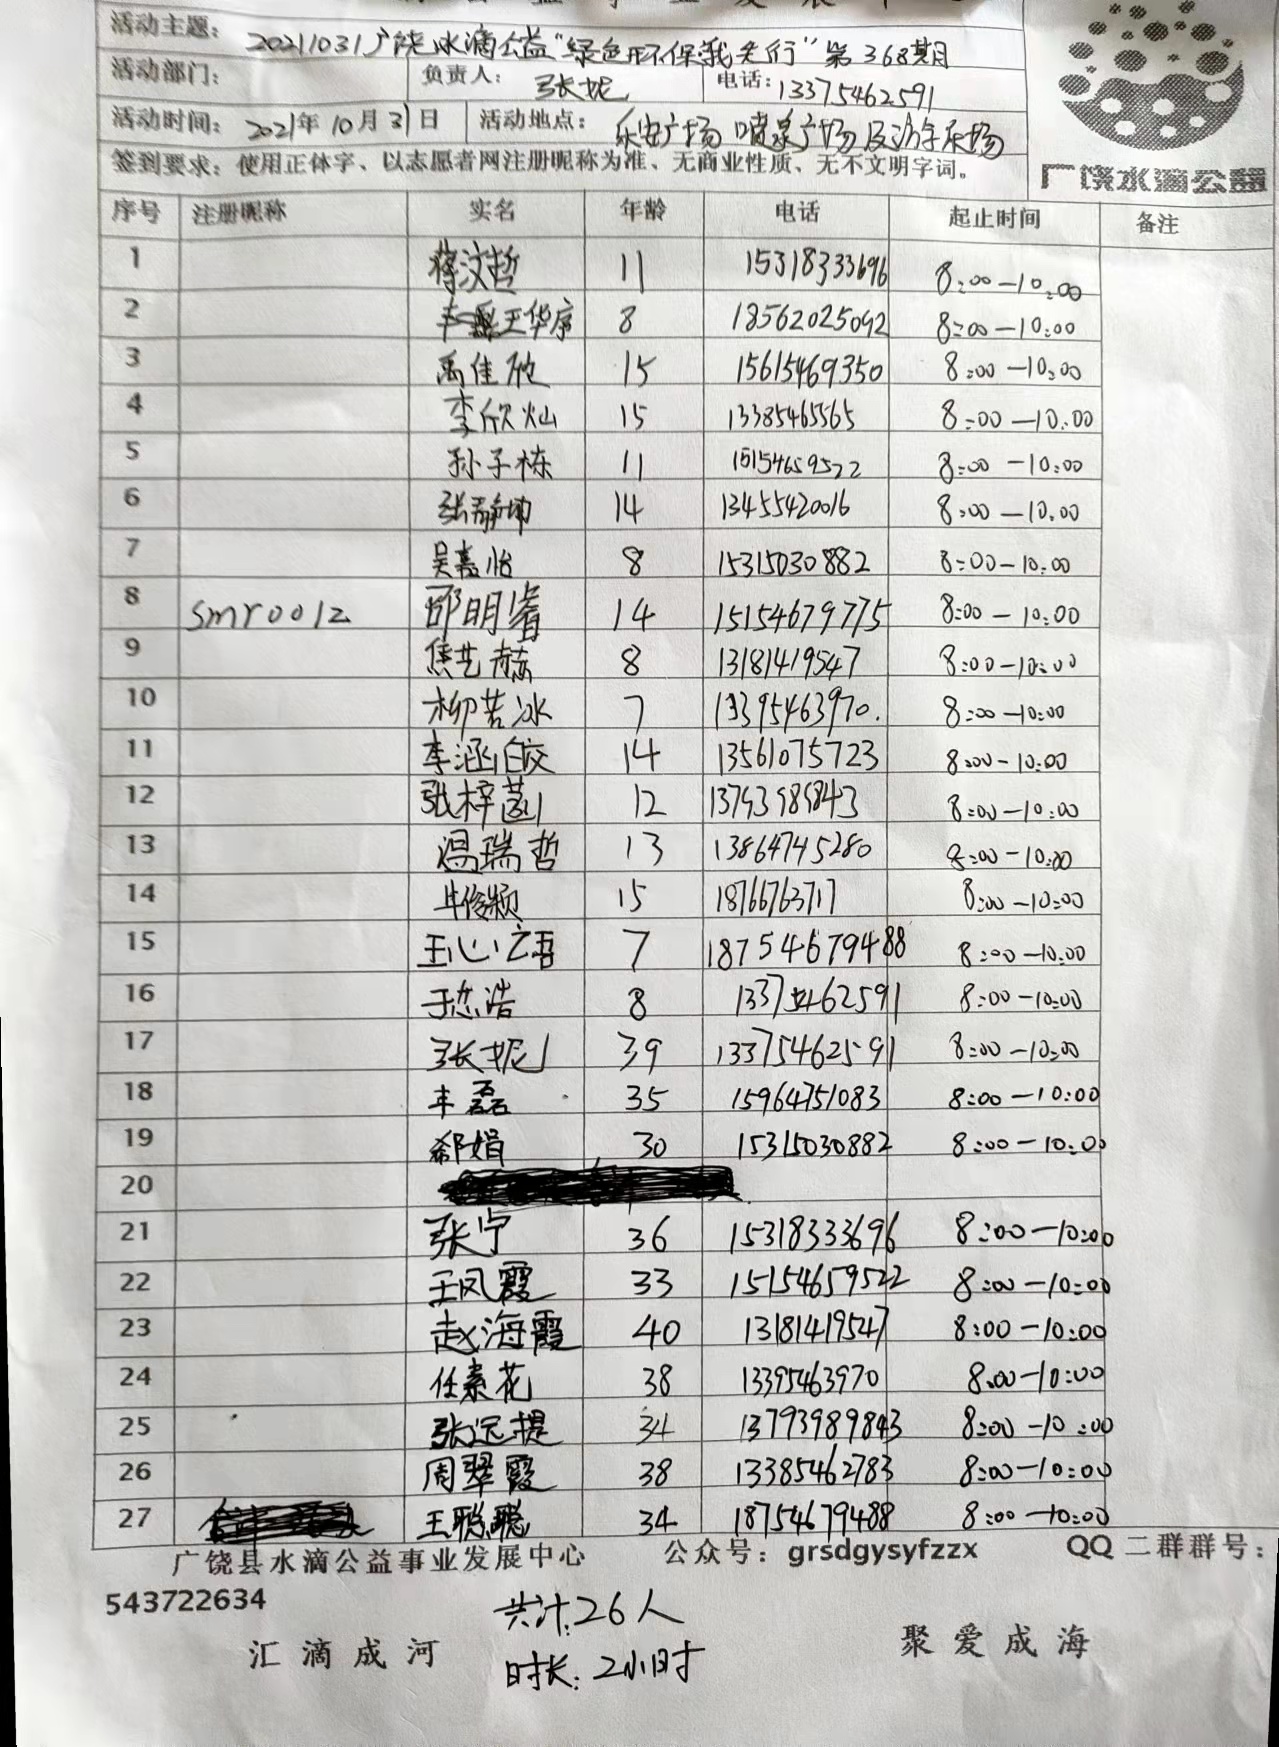 活动主题: 20211031广饶水滴公益"绿色环保我先行"第368期
活动部门: 负责人: 张妮 电话: 13375462591
活动时间: 2021年10月31日 活动地点: 乐安广场 喷泉广场及游乐场
签到要求: 使用正体字、以志愿者网注册昵称为准、无商业性质、无不文明字词。
广饶水滴公益
序号 注册昵称 实名 年龄 电话 起止时间 备注
1 蒋汶哲 11 15318333696 8:00-10:00
2 王华彦 8 18562025092 8:00-10:00
3 禹佳欣 15 15615469350 8:00-10:00
4 李欣灿 15 13385465565 8:00-10:00
5 孙子栋 11 15154659522 8:00-10:00
6 张静坤 14 13455420016 8:00-10:00
7 吴嘉怡 8 15315030882 8:00-10:00
8 smr0012 邵明睿 14 15154679775 8:00-10:00
9 焦艺赫 8 13181419547 8:00-10:00
10 柳若冰 7 13395463970. 8:00-10:00
11 李涵皎 14 13561075723 8:00-10:00
12 张梓 12 13793989843 8:00-10:00
13 温瑞哲 13 13864745280 8:00-10:00
14 牛俊颖 15 18766763717 8:00-10:00
15 王心语 7 18754679488 8:00-10:00
16 于浩 8 13375462591 8:00-10:00
17 张妮 39 13375462591 8:00-10:00
18 丰磊 35 15964751083 8:00-10:00
19 郗娟 30 15315030882 8:00-10:00
20
21 张宁 36 15318333696 8:00-10:00
22 王凤霞 33 15154659522 8:00-10:00
23 赵海霞 40 13181419547 8:00-10:00
24 任素花 38 13395463970 8:00-10:00
25 张远提 34 13793989843 8:00-10:00
26 周翠霞 38 13385462783 8:00-10:00
27 王聪聪 34 18754679488 8:00-10:00
广饶县水滴公益事业发展中心 公众号: grsdgysyfzzx QQ二群群号:
543722634
共计:26人
汇滴成河 聚爱成海
时长: 2小时